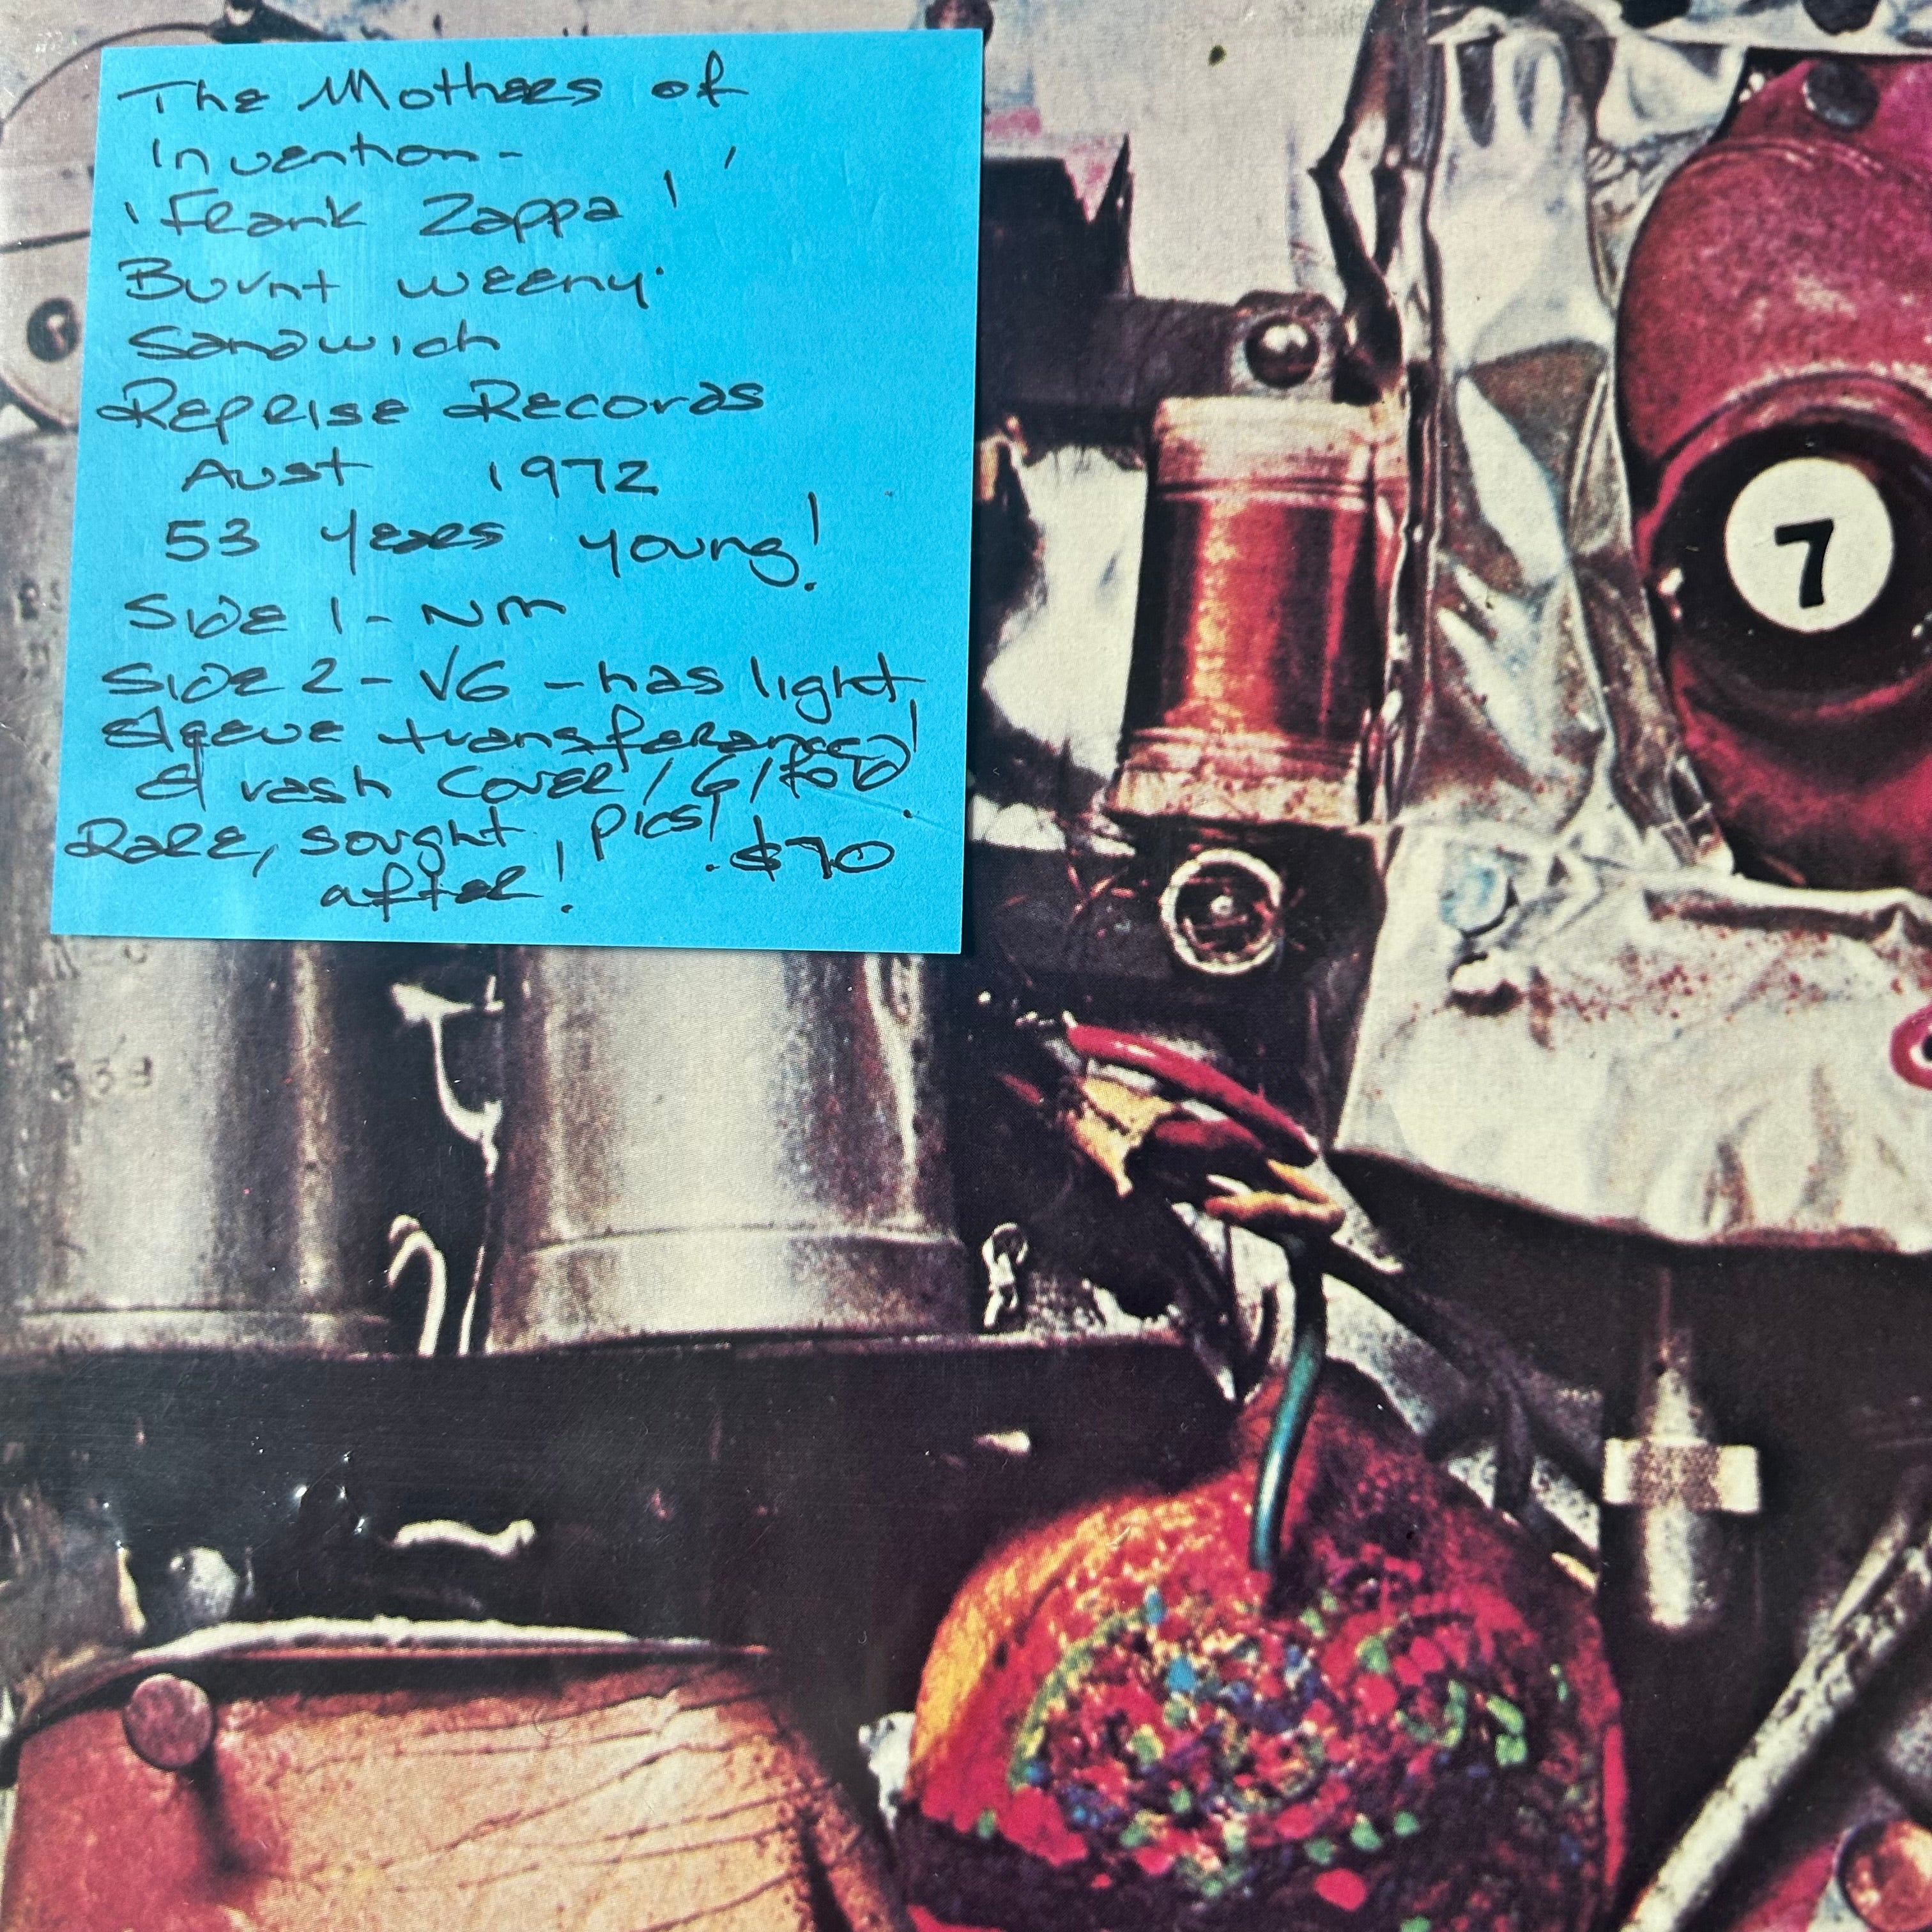 The Mothers of
Invention -
'Frank Zappa'
Burnt Weeny
Sandwich
Reprise Records
Aust 1972
53 years young!
Side 1 - NM
Side 2 - VG - has light
sleeve transference!
& rash cover / G/fold
Rare, sought, pics! $70
after!
7
339